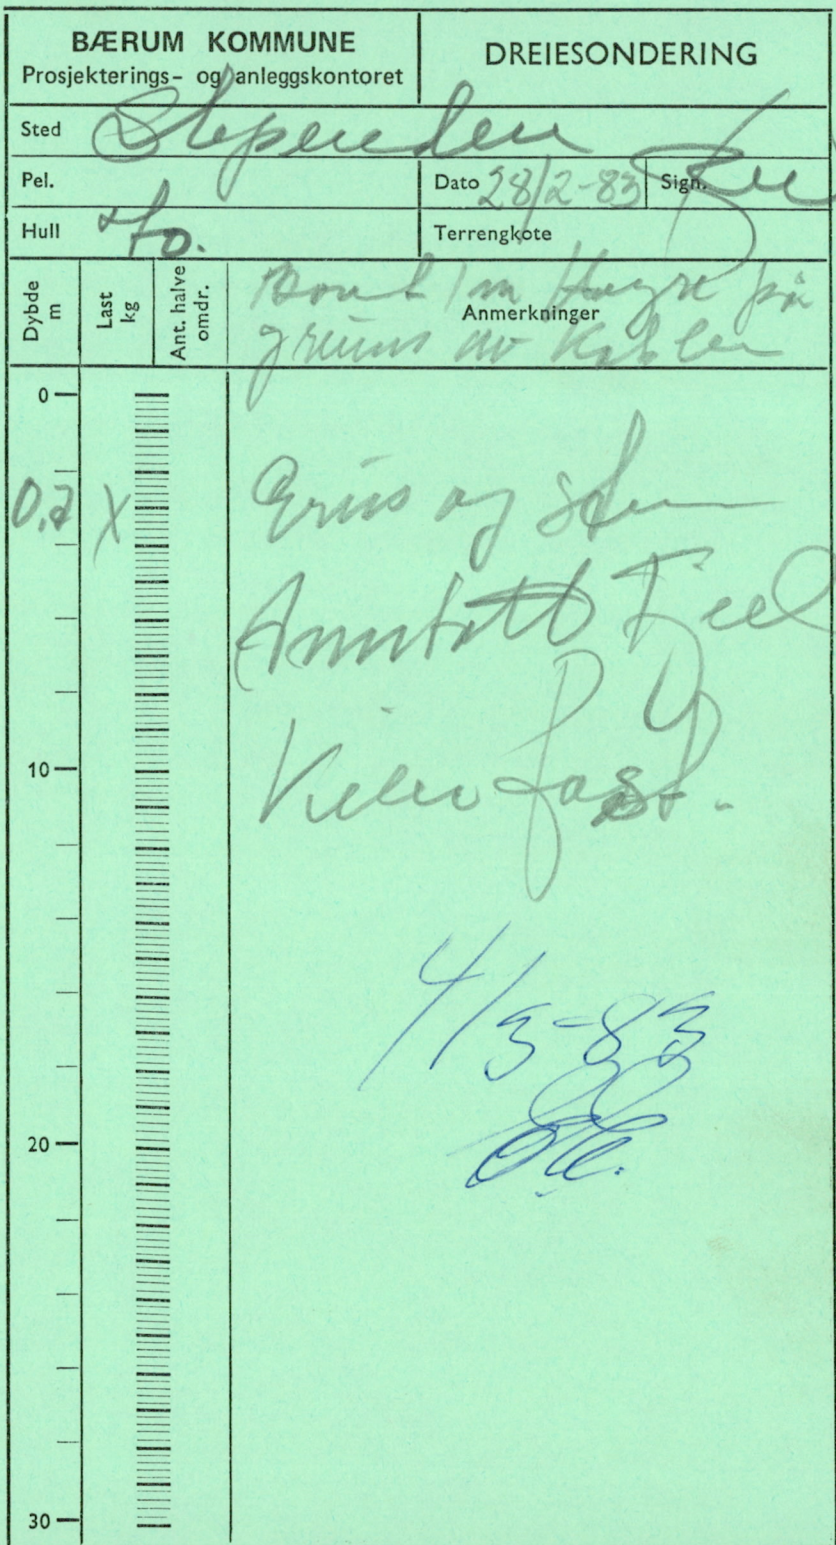 BÆRUM KOMMUNE
Prosjekterings- og anleggskontoret
DREIESONDERING
Sted Slependen
Pel.
Dato 28/2-83 Sign.
Hull 40.
Terrengkote
Dybde m
Last kg
Ant. halve omdr.
Anmerkninger
1m Høyre på
grunn av Kabler
0
0,7 X
Grus og sten
Antatt Fjell
Virker fast.
10
4/3-83
20
30